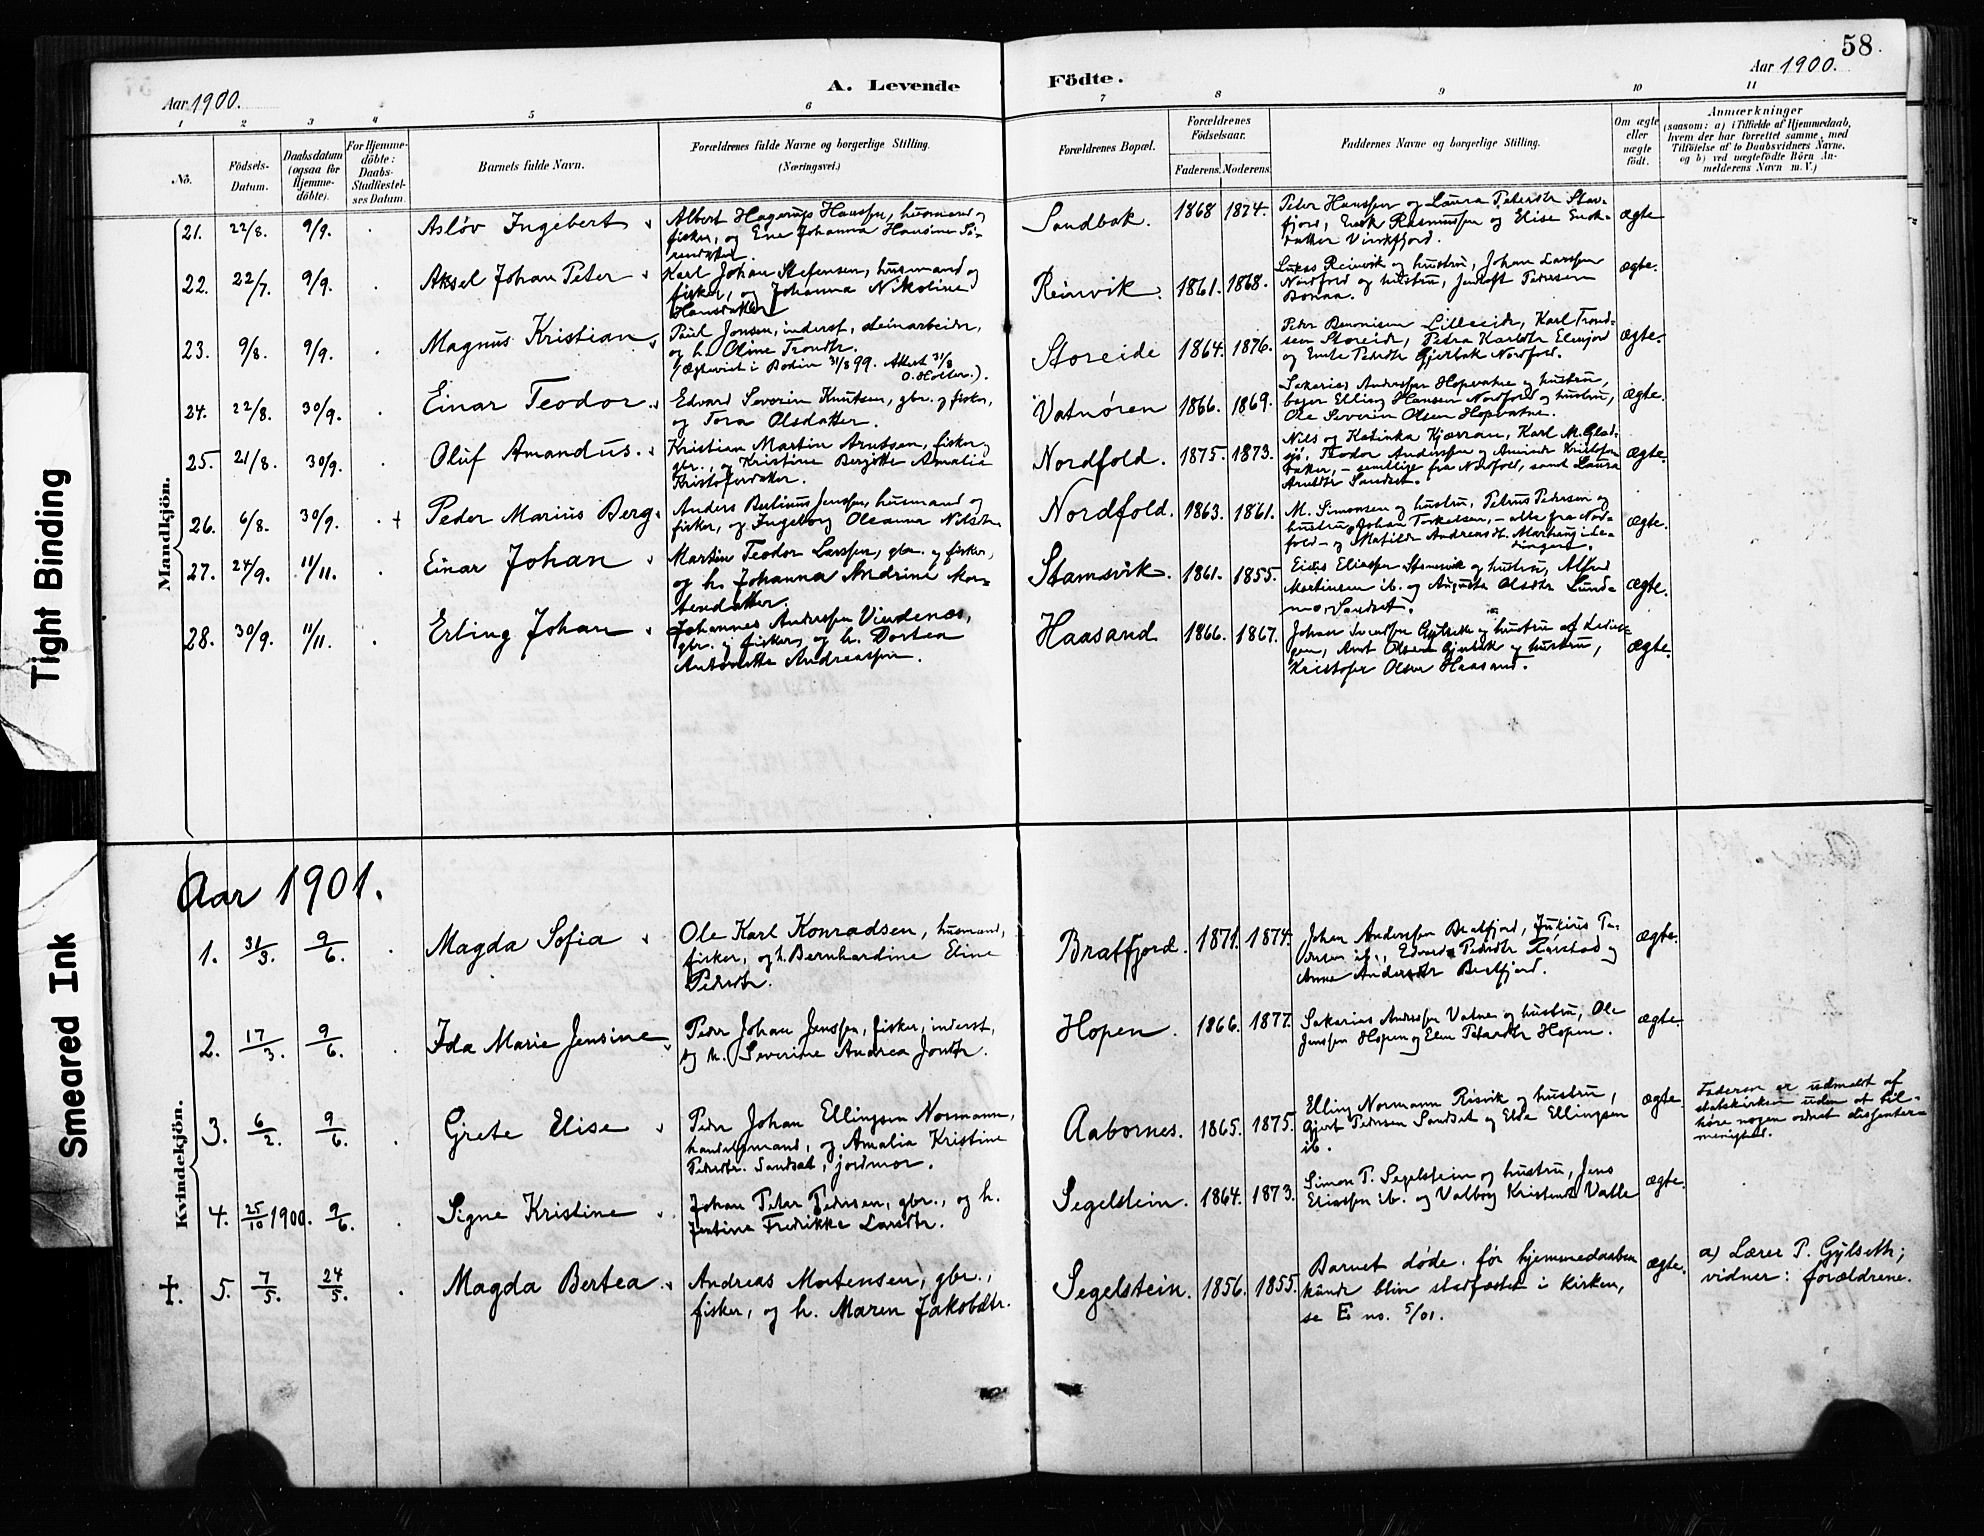 58.
Aar 1900.
A. Levende
Födte.
Aar 1900.
1
2
3
4
5
6
7
8
9
10
11
No.
Födsels-
Datum.
Daabsdatum
(ogsaa for
Hjemme-
döbte).
For Hjemme-
döbte:
Daabs-
Stadfæstel-
ses Datum.
Barnets fulde Navn.
Forældrenes fulde Navne og borgerlige Stilling.
(Næringsvei.)
Forældrenes Bopæl.
Forældrenes
Födselsaar.
Faderens.
Moderens.
Faddernes Navne og borgerlige Stilling.
Om ægte
eller
uægte
født.
Anmærkninger
(saasom: a) i Tilfælde af Hjemmedaab,
hvem der har forrettet samme, med
Tilföielse af to Daabsvidners Navne,
og b) ved uægtefödte Börn An-
melderens Navn m. V.)
Mandkjön.
21. 22/8. 9/9. Asløv Ingebert
Albert Hagerup Hanssen, husmand og
fisker, og Ene Johanna Hansine Sö-
rendatter.
Sandbak. 1868 1874.
Peter Hanssen og Laura Petersdtr Stor-
fjord, Enok Rasmussen og Elise Enok-
datter Vinkfjord.
ægte
22. 22/7. 9/9. Aksel Johan Peter
Karl Johan Stefensen, husmand og
fisker, og Johanna Nikoline
Hansdatter
Reinvik. 1861. 1868.
Lukas Reinvik og hustru, Johan Larssen
Nordfold og hustru, Jentoft Pedersen
Bonaa.
ægte.
23. 9/8. 9/9. Magnus Kristian
Paul Jonsen, inderst, steinarbeider,
og h. Oline Trondtr.
(Ægteviet i Bodin 31/8 99. Attest 31/8
O. Holter.).
Storeide 1864. 1876.
Peter Benonisen Lilleeide, Karl Trond-
sen Storeide, Petra Karldtr Elvefjord
og Emte Pedrdtr Gjerbak Nordfold.
ægte.
24. 22/8. 30/9. Einar Teodor
Edvard Severin Knutsen, gbr. og fisker,
og Tora Olsdatter.
Vatnøren 1866. 1869.
Sakarias Anderssen Hopvatne og hustru,
bager Elling Hansen Nordfold og hustru,
Ole Severin Olsen Hopvatne.
ægte.
25. 21/8. 30/9. Oluf Amandus.
Kristian Martin Arntsen, fisker og
gbr., og Kristine Bergitte Amalia
Kristoferdatter.
Nordfold. 1875. 1873.
Nils og Katinka Kjærran, Karl M. Glad-
sjø, Teodor Anderssen og Amanda Kristofer-
datter, – samtlige fra Nordfold, samt Laura
Arntdtr Sandset.
ægte.
26. 6/8. 30/9. + Peder Marius Berg.
Anders Bertinus Jenssen, husmand og
fisker, og Ingeborg Oleanna Nilsdtr.
Nordfold. 1863. 1861.
M. Simonsen og hustru, Petrus Pedersen og
hustru, Johan Torkelsen, – alle fra Nord-
fold – og Matilde Andreas H. Marhaug i Le-
dingen.
ægte.
27. 24/9. 11/11. Einar Johan
Martin Teodor Larssen, gbr. og fisker,
og h. Johanna Andrine Mor-
tensdatter.
Stamsvik. 1861. 1855.
Elias Eliassen Stamsvik og hustru, Alfred
Martinsen ib. og Augusta Olsdtr Lund-
mo, Sandset.
ægte.
28. 30/9. 11/11. Erling Johan
Johannes Anderssen Vindenes,
gbr. og fisker, og h. Dortea
Antonette Andreassen.
Haasand 1866. 1867.
Johan Svendsen Gylseth og hustru af Ledin-
gen, Arnt Olsen Gjerbak og hustru,
Kristofer Olsen Haasand.
ægte.
Aar 1901.
Kvindekjön.
1. 31/3. 9/6. Magda Sofia
Ole Karl Konradsen, husmand,
fisker, og h. Bernhardine Eline
Pedrdtr.
Bratfjord. 1871. 1874.
Johan Anderssen Bratfjord, Julius Pe-
dersen ib., Edvarda Pedrdtr Rørstad og
Anna Andersdtr Bratfjord.
ægte.
2. 17/3. 9/6. Ida Marie Jensine
Peder Johan Jenssen, fisker, inderst,
og h. Severine Andrea Jondtr.
Hopen. 1866. 1877.
Sakarias Anderssen Vatne og hustru, Ole
Jenssen Hopen og Elen Petersdtr Hopen.
ægte.
3. 6/2. 9/6. Grete Elise
Peder Johan Ellingsen Normann,
handelsmand, og Amalia Kristine
Pedrdtr. Sandset, jordmor.
Aabornes. 1865. 1875.
Elling Normann Risvik og hustru,
Gjert Pedersen Sandset og Elda Ellingsen
ib.
ægte.
Faderen er udmeldt af
statskirken uden at til-
høre nogen ordnet dissenter-
menighed.
4. 25/10 1900. 9/6. Signe Kristine
Johan Peter Pedersen, gbr., og h.
Jentine Fredrikke Larsdtr.
Segelstein. 1864. 1873.
Simon P. Segelstein og hustru, Jens
Eliassen ib. og Valborg Kristensen Valle
ægte.
+. 5. 7/5. 24/5. Magda Bertea
Andreas Mortensen, gbr.,
fisker, og h. Maren Jakobdtr.
Segelstein. 1856. 1855.
Barnet døde før hjemmedaaben
kunde blive stadfæstet i kirken,
se E no. 5/01.
ægte.
a) Lærer P. Gylseth;
vidner: forældrene.
Tight Binding
Smeared Ink